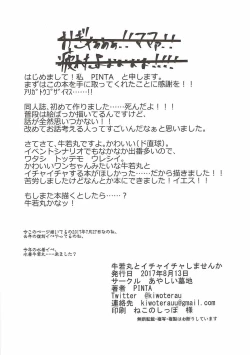 はじめまして！私　PINTA　と申します。
まずはこの本を手に取ってくれたことに感謝を！！
ｱﾘｶﾞﾄｳｺﾞｻﾞｲﾏｽ……!!
同人誌、初めて作りました……死んだよ！！！
普段は絵ばっか描いてるんですけど、
話が全然思いつかない！！！
改めてお話考える人ってすごいんだなぁと思いました。
さてさて、牛若丸ですよ、かわいい(ド直球)。
イベントシナリオでもなかなか出番多いので、
ワタシ　トッテモ　ウレシイ。
かわいいワンちゃんみたいな牛若丸と
イチャイチャする本がほしかった……だから描きました！！
苦労しましたけどなんとか本にできました！イエス！！
もしまた本描くとしたら……？
牛若丸かなッ！
牛若丸とイチャイチャしませんか
発行日　2017年8月13日
サークル　あやしい墓地
著者　PINTA
Twitter　@kiwoterou
連絡先　kiwoterauu@gmail.com
印刷　ねこのしっぽ　様
無断転載・複写・複製はお断りしています